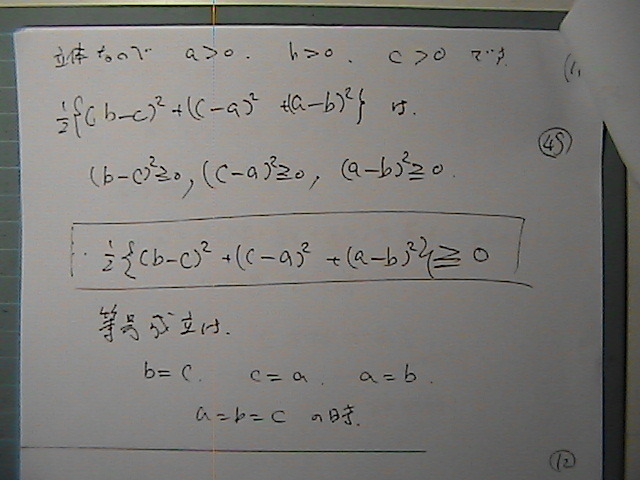 立体なので a>0. b>0. c>0 です. (1,
½{(b-c)²+(c-a)²+(a-b)²} は.
㊺
(b-c)²≧0, (c-a)²≧0, (a-b)²≧0.
∴ ½{(b-c)²+(c-a)²+(a-b)²}≧0
等号成立は.
b=c. c=a. a=b.
a=b=c の時.
⑫